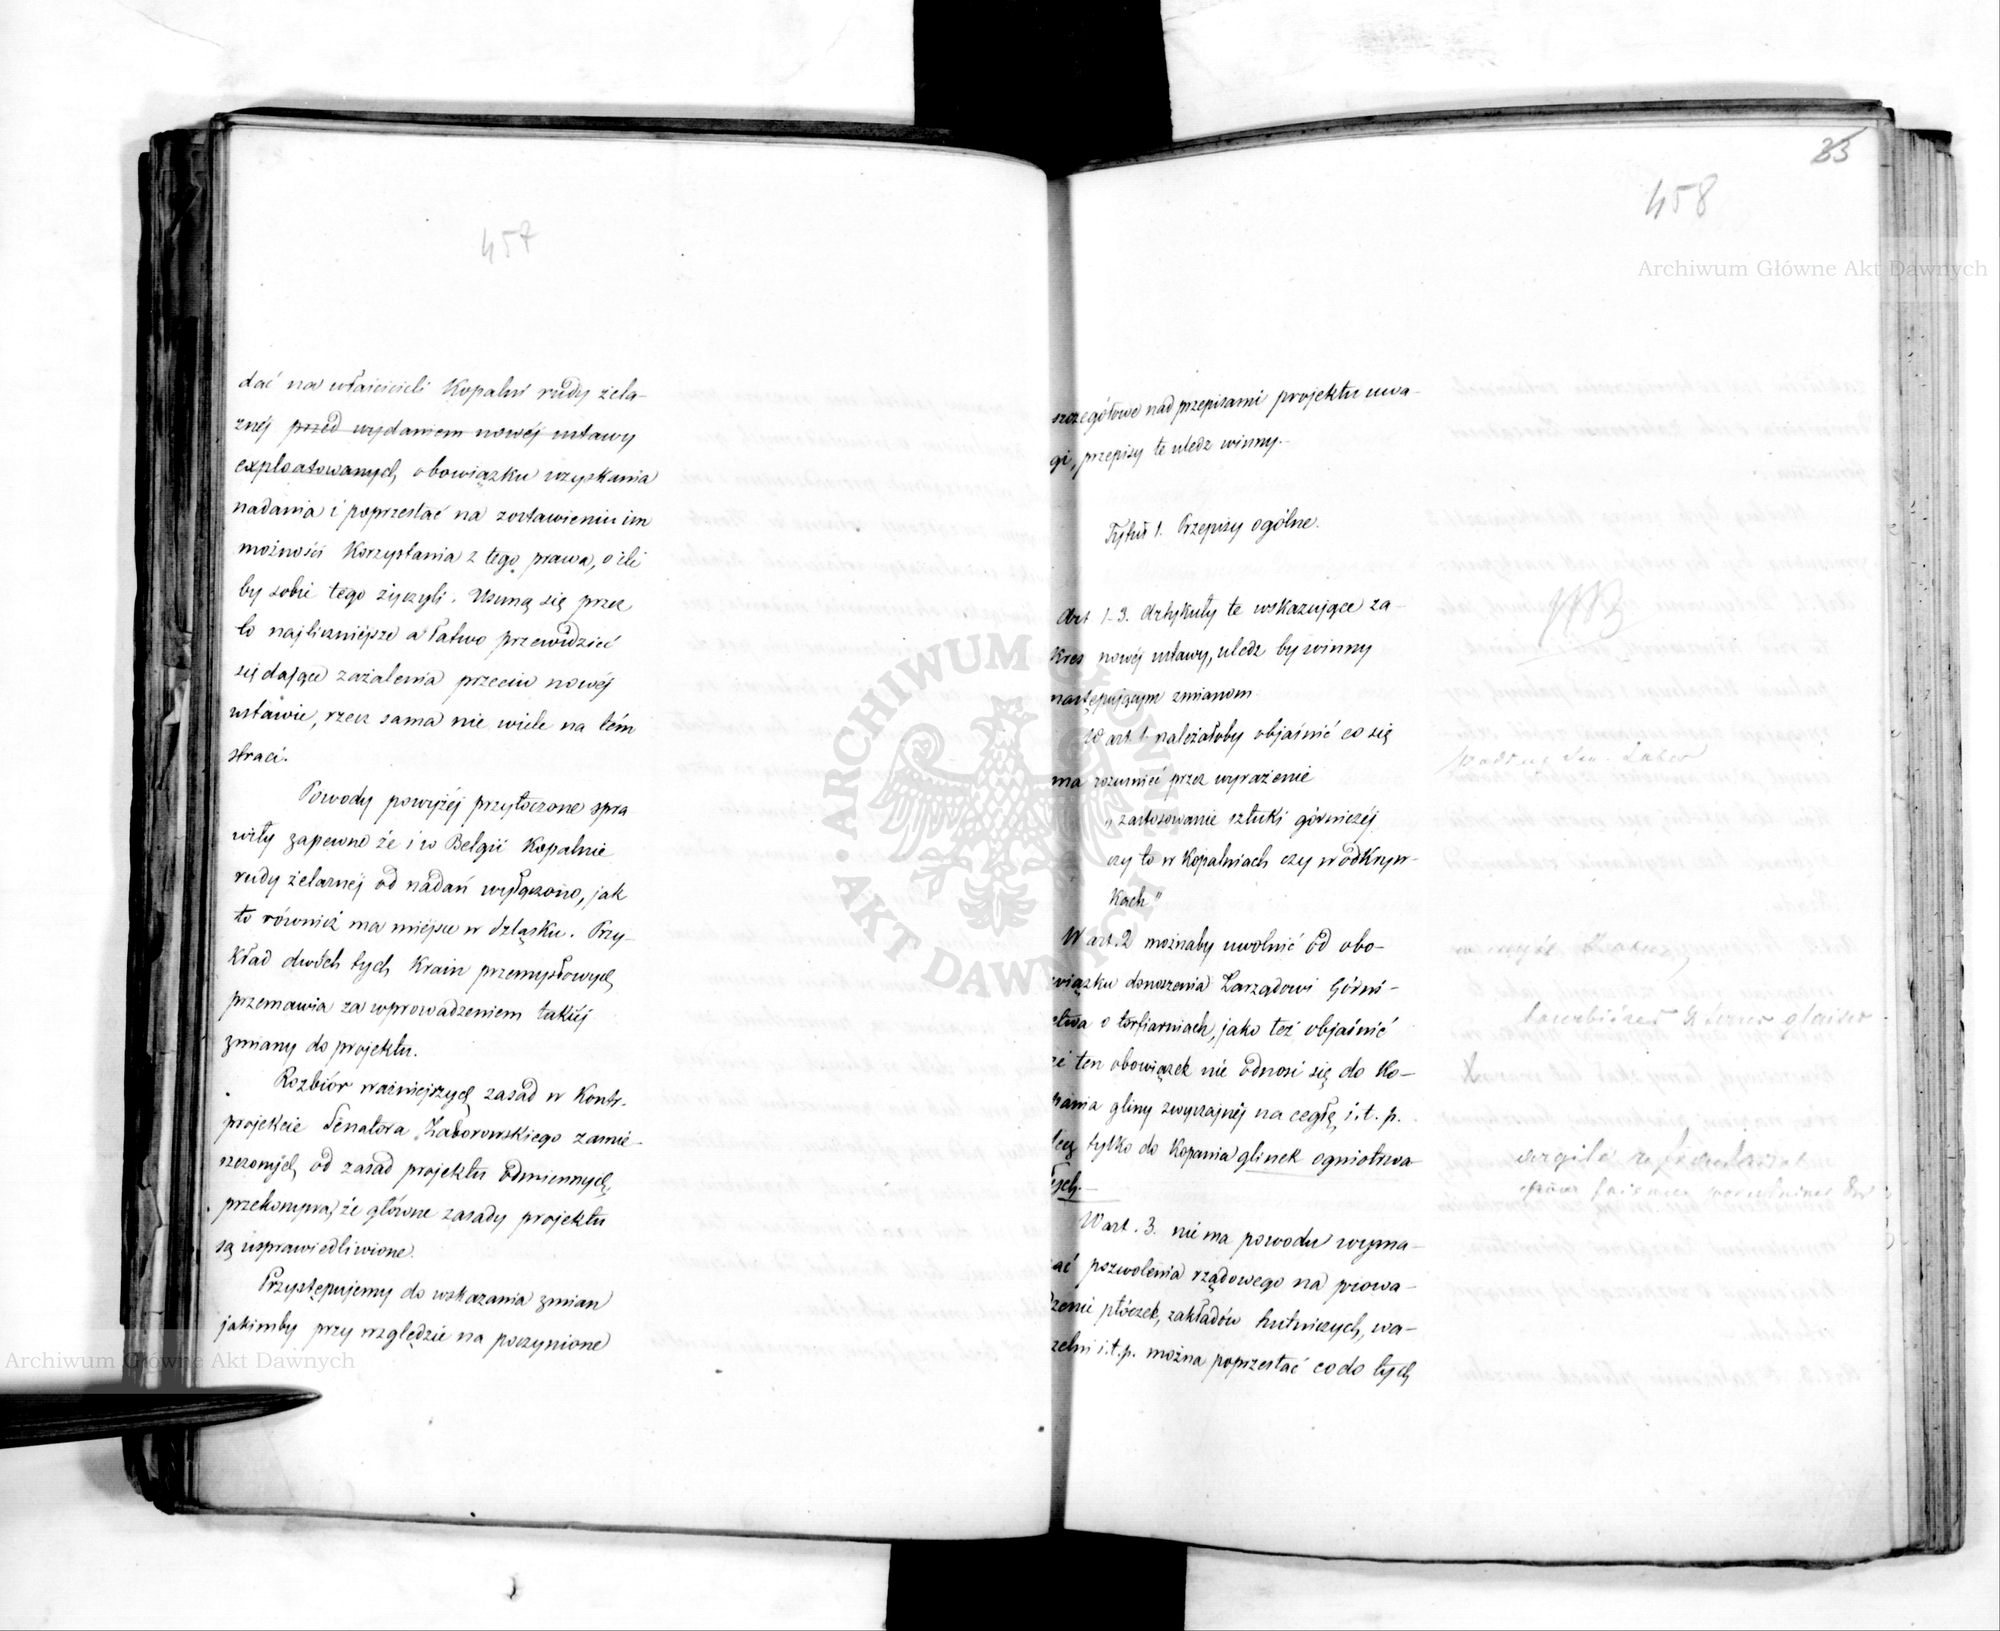 457
dać na właścicieli Kopalni rudy żela-
znéj przed wydaniem nowéj ustawy
exploatowanych, obowiązku uzyskania
nadania i poprzestać na zostawieniu im
możności Korzystania z tego prawa, o ile
by sobie tego życzyli. Usuną się przez
to najliczniéjsze a łatwo przewidzieć
się dające zażalenia przeciw nowéj
ustawie, rzecz sama nie wiele na tém
straci.
Powody powyżéj przytoczone spra
wiły zapewne że i w Belgii Kopalnie
rudy żelaznéj od nadań wyłączono, jak
to również ma miéjsce w Szląsku. Przy-
kład dwóch tych Krain przemysłowych
przemawia za wprowadzeniem takiéj
zmiany do projektu.
Rozbiór ważniejszych zasad w Kontr-
projekcie Senatora Zaborowskiego zamie-
szczonych, od zasad projektu odmiennych,
przekonywa, że główne zasady projektu
są usprawiedliwione.
Przystępujemy do wskazania zmian
jakimby przy względzie na poczynione
Archiwum Główne Akt Dawnych
33
458
Archiwum Główne Akt Dawnych
szczegółowe nad przepisami projektu uwa-
gi, przepisy te uledz winny.-
Tytuł 1. Przepisy ogólne.
Art 1-3. Artykuły te wskazujące za-
kres nowéj ustawy, uledz by winny
następującym zmianom
W art 1. należałoby objaśnić co się
ma rozumieć przez wyrażenie
„zastosowanie sztuki górniczéj
czy to w Kopalniach czy w odkryw-
kach"
W art. 2 możnaby uwolnić od obo-
wiązku donoszenia Zarządowi Górni-
ctwa o torfiarniach, jako też objaśnić
że ten obowiązek nie odnosi się do Ko-
pania gliny zwyczajnéj na cegłę, i.t.p.
lecz tylko do Kopania glinek ogniotrwa-
łych.-
W art. 3. nie ma powodu wyma-
gać pozwolenia rządowego na prowa-
dzenie płóczek, zakładów hutniczych, wa-
rzelni i.t.p. można poprzestać co do tych
ARCHIWUM GŁÓWNE AKT DAWNYCH